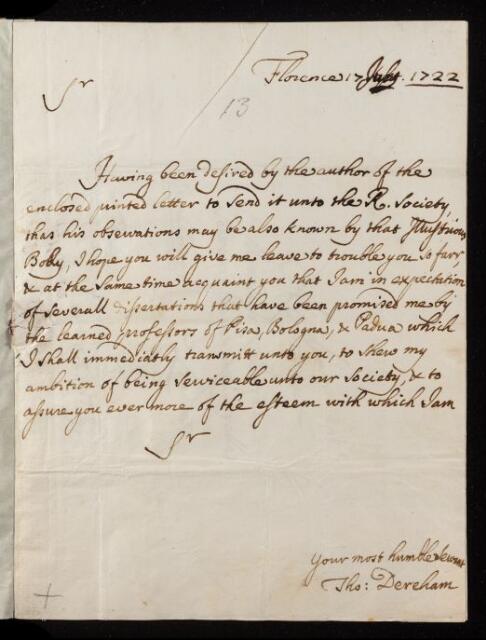 Florence 17 July. 1722
Sr
13
Having been desired by the author of the
enclosed printed letter to send it unto the R. Society
that his observations may be also known by that Illustrious
Body, I hope you will give me leave to trouble you so far,
& at the same time acquaint you that I am in expectation
of severall dissertations that have been promised me by
the learned professors of Pisa, Bologna, & Padua which
I shall immediatly transmitt unto you, to shew my
ambition of being serviceable unto our Society, & to
assure you ever more of the esteem with which I am
Sr
your most humble servant
Tho: Dereham